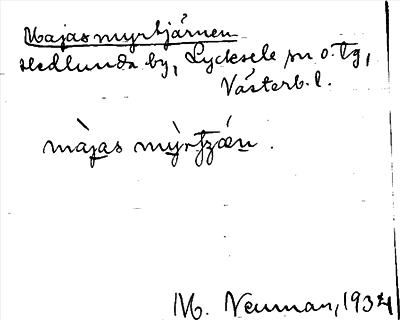 Majasmyrtjärnen
Hedlunda by, Lycksele sn o. tg,
Västerb. l.
màjas mỳrtʒǽn .
M. Neuman, 1934